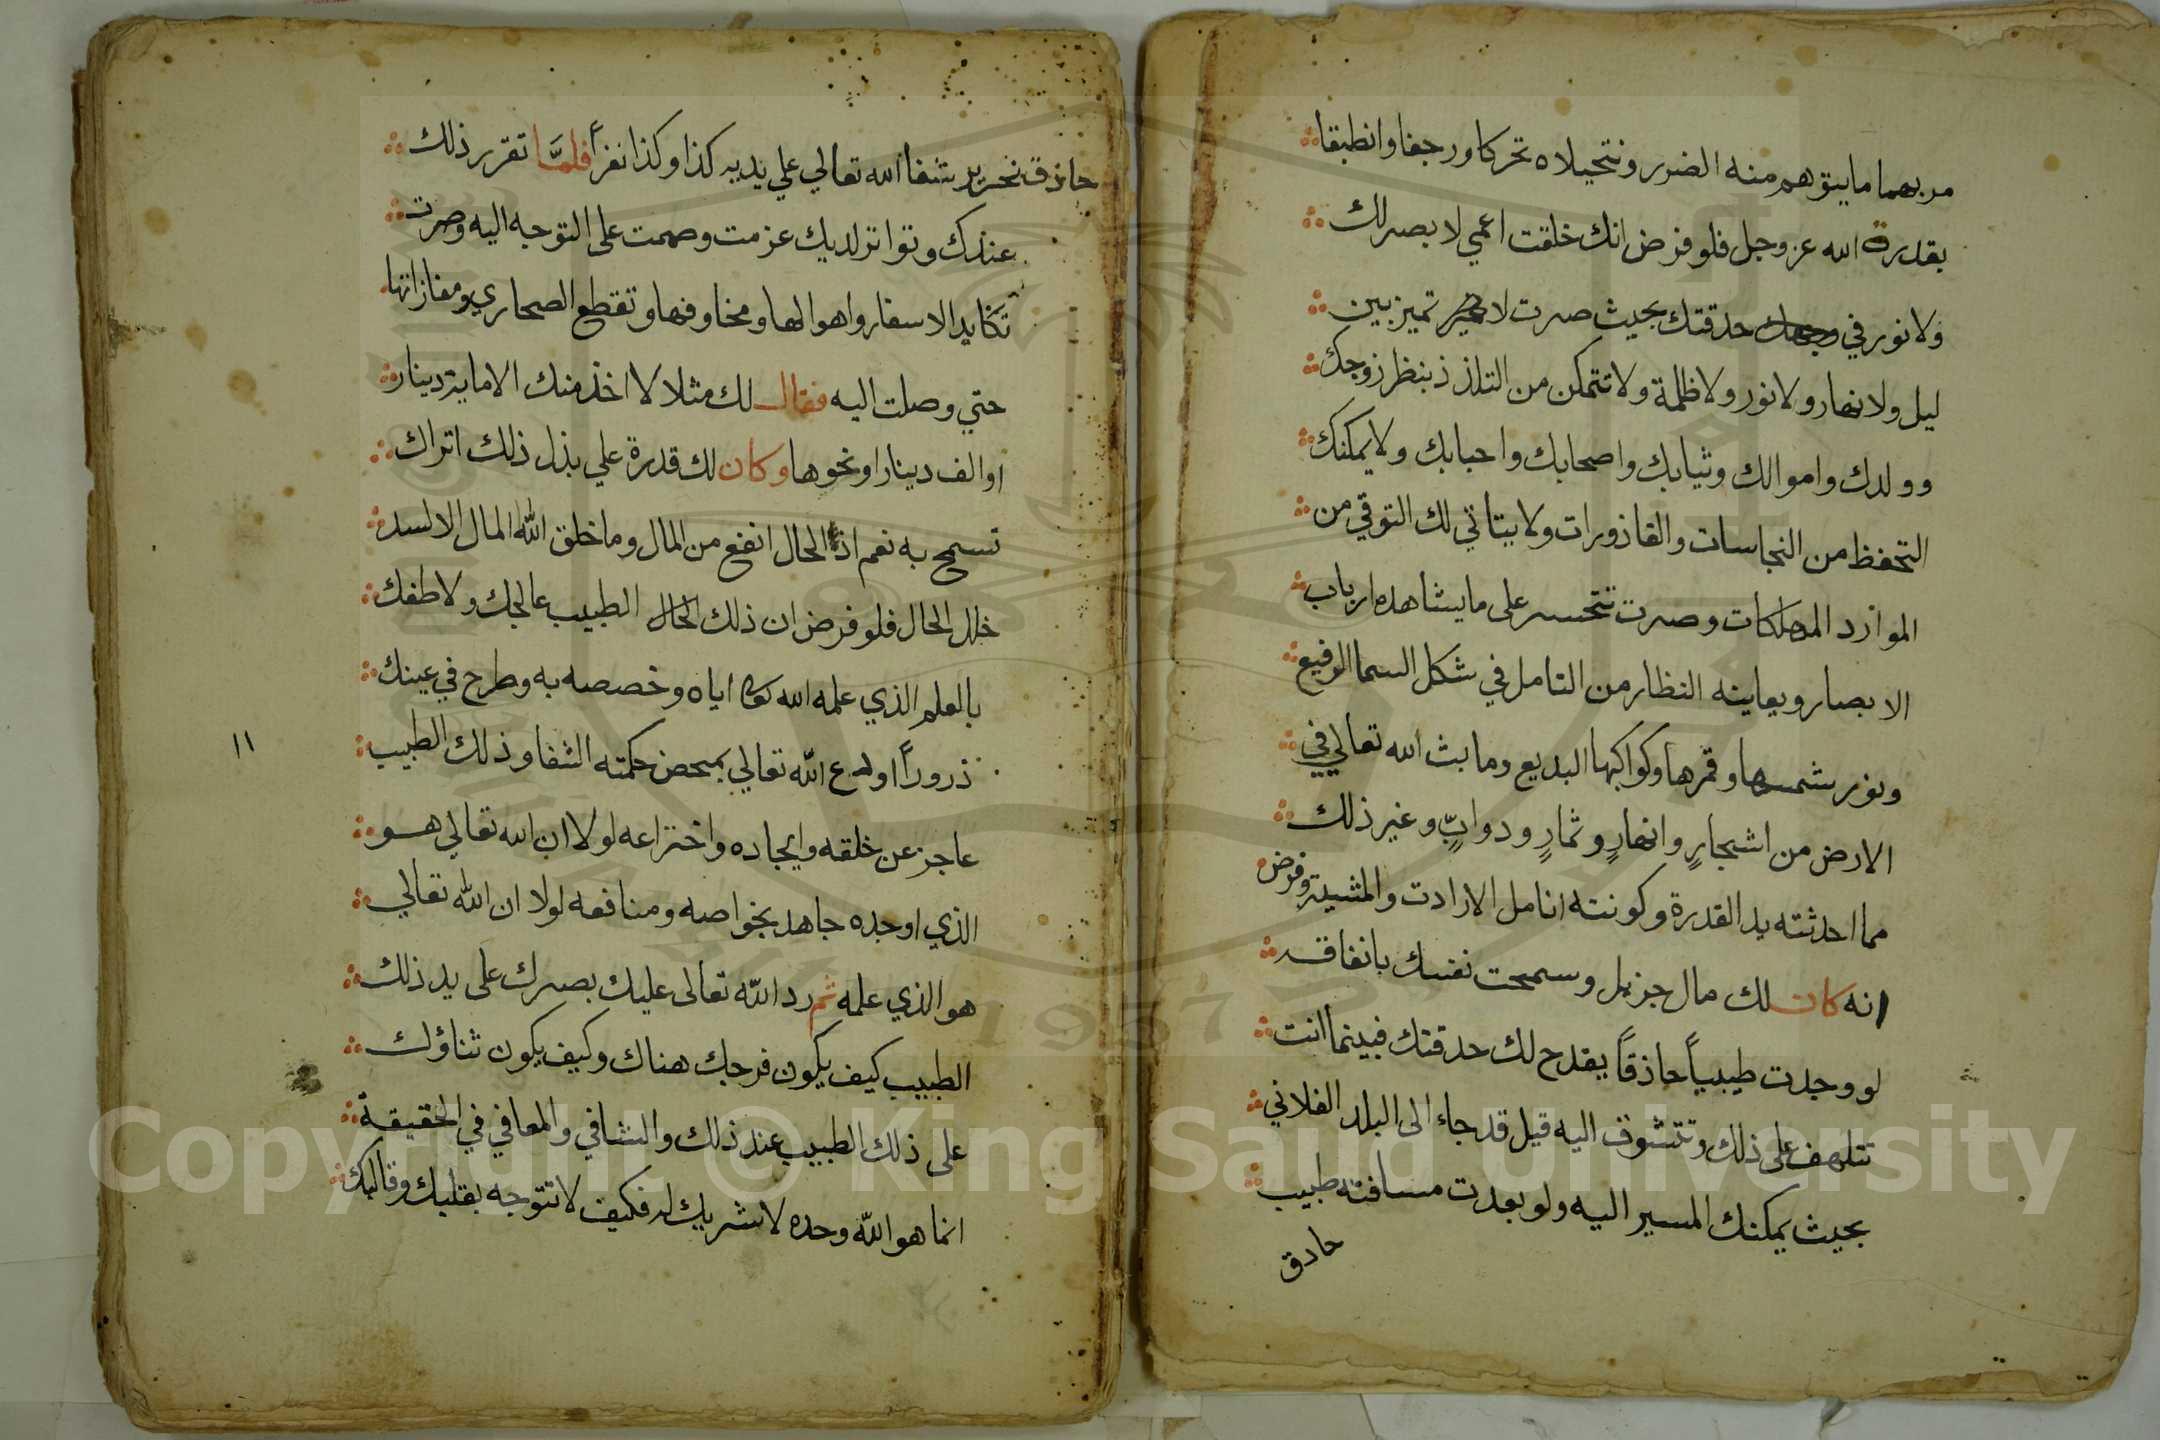 مر بهما ما يتوهم منه الضرر ونتحيلاه تحركا ورجفا وانطبقا
بقدرة الله عز وجل فلو فرض انك خلقت اعمي لا بصر لك
ولا نور في حدقتك بحيث صرت لا تميز بين
ليل ولا نهار ولا نور ولا ظلمة ولا تتمكن من التلذذ بنظر زوجك
وولدك واموالك وثيابك واصحابك واحبابك ولا يمكنك
التحفظ من النجاسات والقاذورات ولا يتاتي لك التوقي من
الموارد المهلكات وصرت تتحسر على ما يشاهده ارباب
الابصار ويعاينه النظار من التامل في شكل السما الرفيع
ونور شمسها وقمرها وكواكبها البديع وما بث الله تعالي في
الارض من اشجارٍ وانهارٍ وثمارٍ ودوابٍّ وغير ذلك
مما احدثته يد القدرة وكونته انامل الارادت والمشية وفرض
انه كان لك مال جزيل وسمحت نفسك بانفاقه
لو وجدت طبيباً حاذقاً يقدح لك حدقتك فبينما انت
تتلهف على ذلك وتتشوق اليه قيل قد جاء الى البلد الفلاني
بحيث يمكنك المسير اليه ولو بعدت مسافته طبيب
حادق
حاذق نحرير شفا الله تعالي علي يديه كذا وكذا نفراً فلمَّا تقرر ذلك
عندك وتواتر لديك عزمت وصممت على التوجه اليه وصرت
تكابد الاسفار واهوالها ومخاوفها وتقطع الصحاري ومفازاتها
حتي وصلت اليه فقال لك مثلا لا اخذ منك الا ماية دينار
او الف دينار او نحوها وكان لك قدرة علي بذل ذلك اتراك
تسمح به نعم اذ الحال انفع من المال وما خلق الله المال الا لسد
خلل الحال فلو فرض ان ذلك الطبيب عالجك ولاطفك
بالعلم الذي علمه الله اياه وخصصه به وطرح في عينك
ذروراً اودع الله تعالي بمحض حكمته الشفا وذلك الطبيب
عاجز عن خلقه وايجاده واختراعه لولا ان الله تعالي هو
الذي اوجده جاهل بخواصه ومنافعه لولا ان الله تعالي
هو الذي علمه ثم رد الله تعالى عليك بصرك على يد ذلك
الطبيب كيف يكون فرحك هناك وكيف يكون ثناؤك
على ذلك الطبيب عند ذلك والشافي والمعافي في الحقيقة
انما هو الله وحده لا شريك له فكيف لا تتوجه بقلبك وقالبك
١١
Copyright © King Saud University
1957